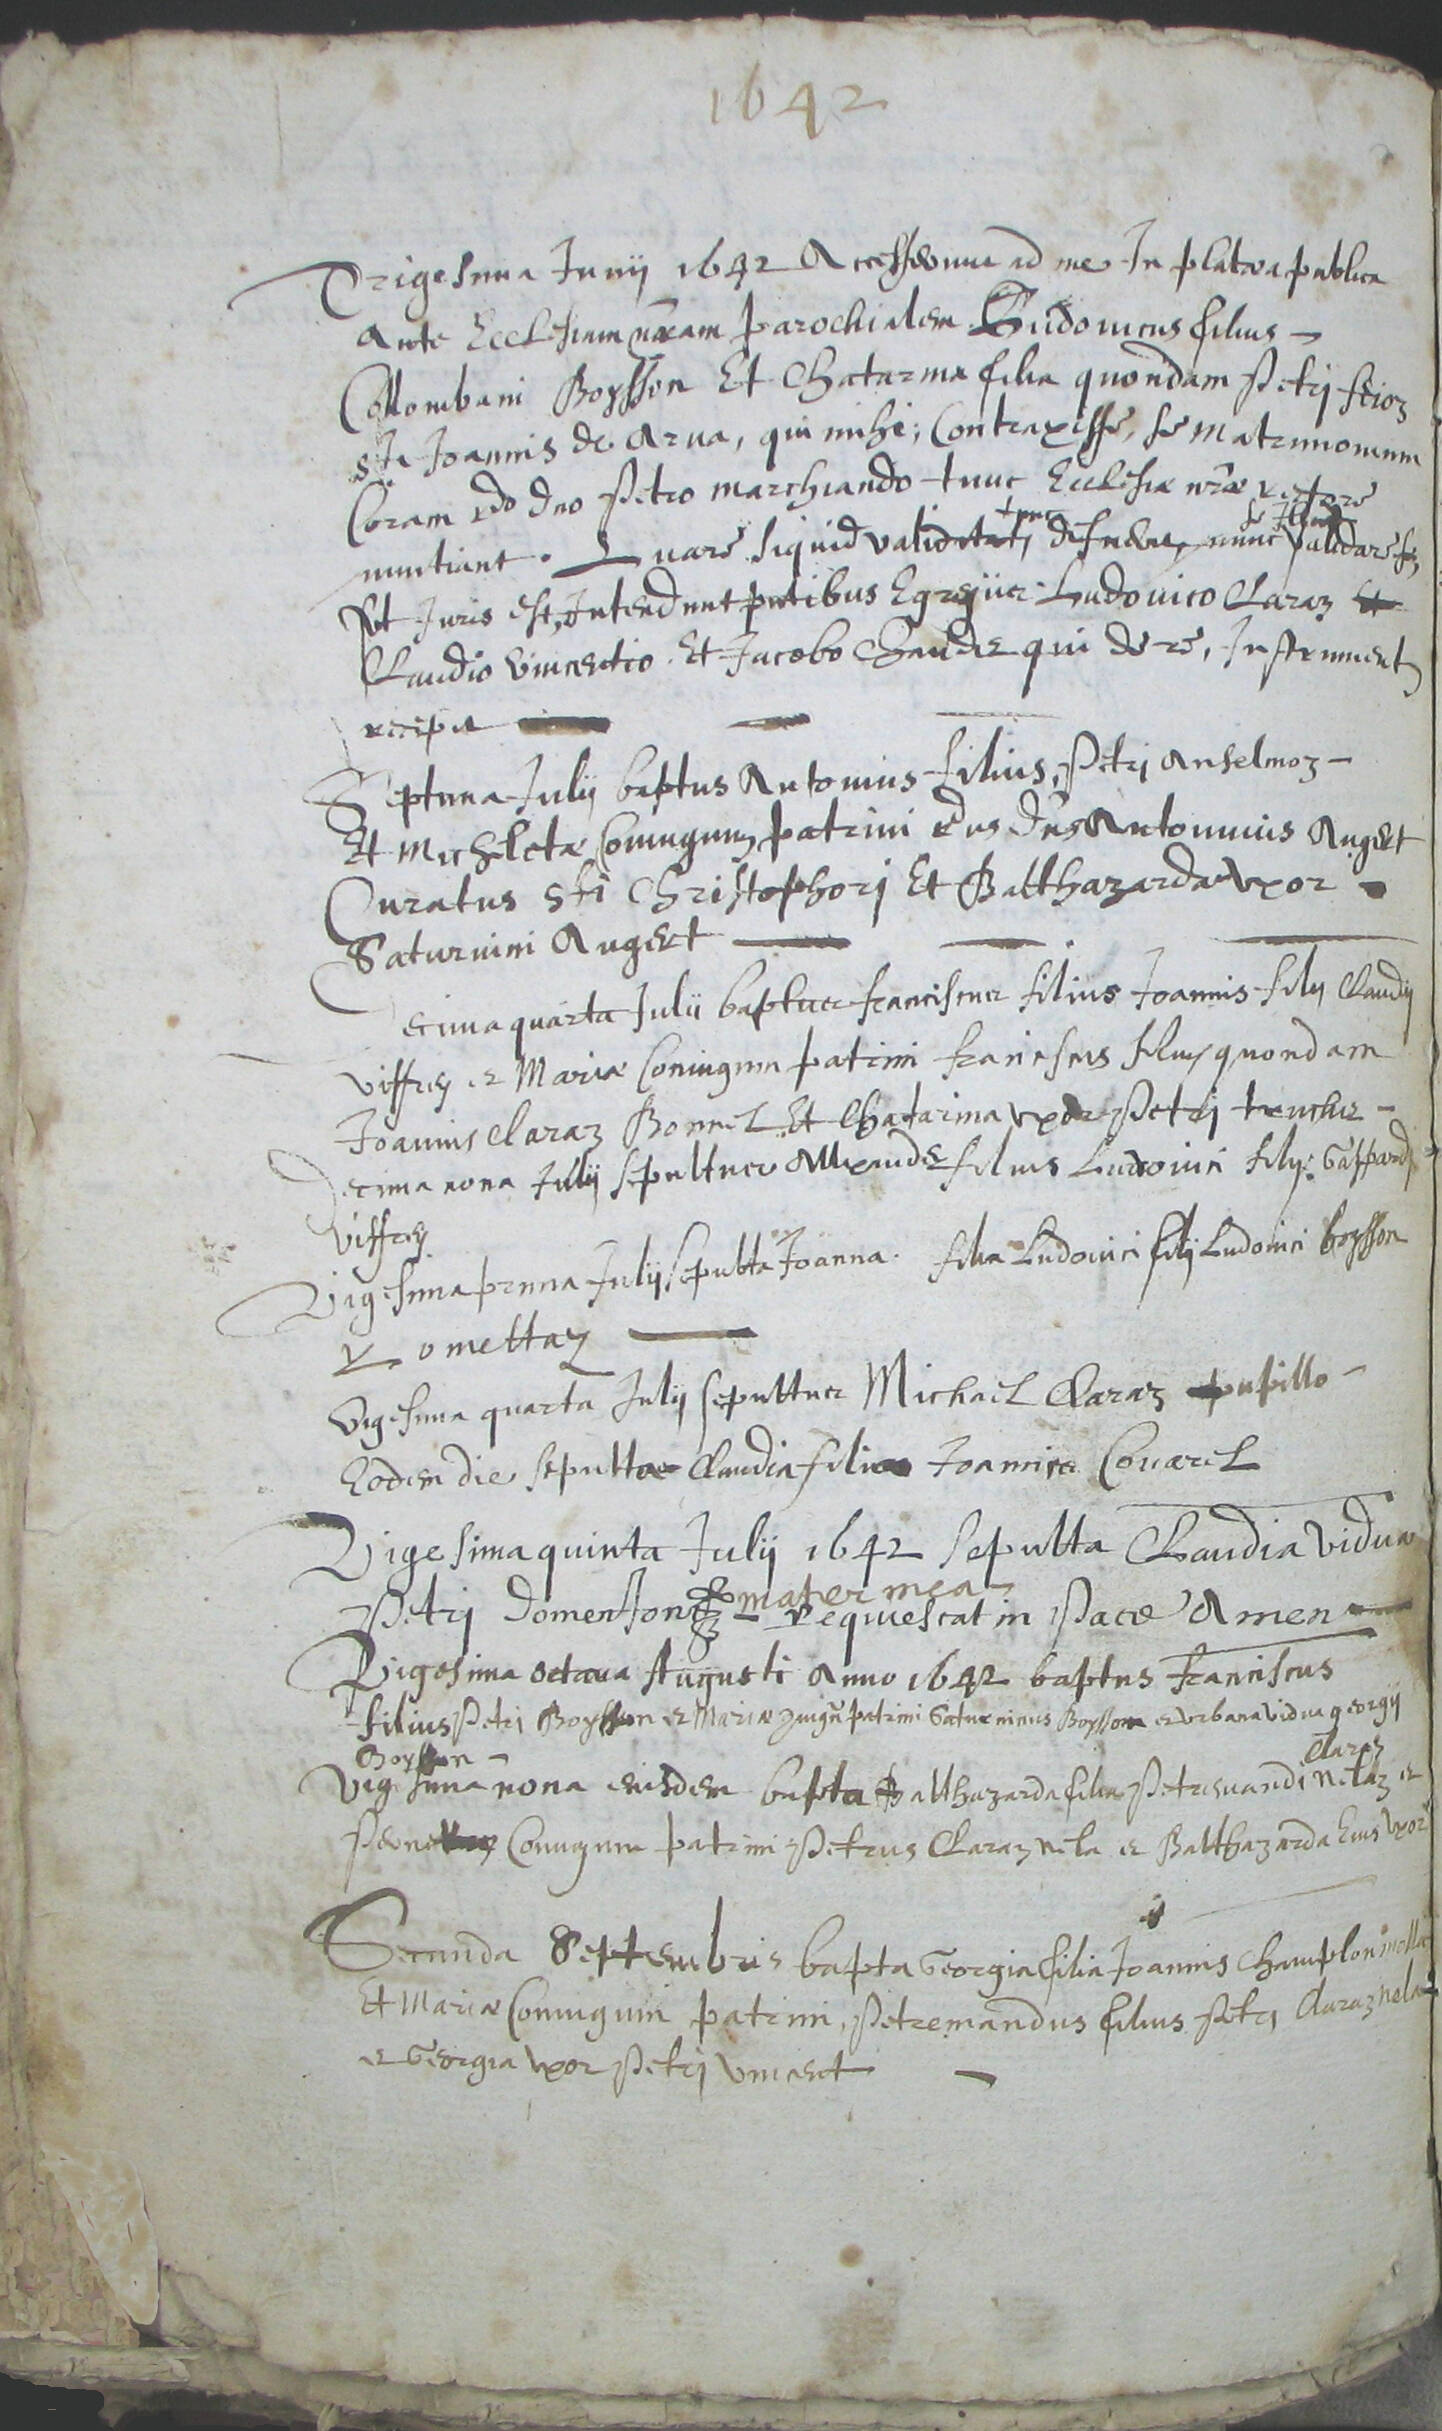 1642
Trigesima Junij 1642 Accesserunt ad me In platea publica
Ante Ecclesiam nram parochialem Ludovicus filius
Collombani Boysson Et Chatarina filia quondam Petrj
sti Joannis de Arva, qui mihi; Contraxisse, se Matrimonium
Coram Rdo dno Petro marchiando tunc Ecclesiæ nræ rectore
nuntiant. Quare siquid validitatj tunc defuerit, nunc validare
Ut Juris est, Intendunt pntibus Egrejiis Ludovico Claraz Et
Claudio Vincentio Et Jacobo qui de re, Instrument
recepit
Septima Julij baptus Antonius filius, Petrj Anselmoz
Et Micheletæ Coniugum patrini Rdus dns Antonius Augert
Curatus Sti Christophorj Et Balthazarda Uxor
Saturnini Augert
Decima quarta Julii baptus franciscus filius Joannis filij Claudij
Viffrey et Mariæ Coniugum patrini franciscus filius quondam
Joannis Claraz Bonnel Et Chatarina uxor Petrj truchet
Decima nona Julij sepultus Allexander filius Ludovici filij Gaspardj
Viffrey
Vigesima prima Julij sepulta Joanna filia Ludovici filij Ludovici boysson
Romettaz
Vigesima quarta Julij sepultus Michael Claraz pupillo
Eodem die sepulta Claudia filia Joannis Covarel
Vigesima quinta Julij 1642 sepulta Claudia vidua
Petrj Domenjon mater mea requiescat in Pace Amen
Vigesima octava Augusti Anno 1642 baptus franciscus
filius Petri Boysson et Mariæ patrini Saturninus Boysson et urbana vidua georgij
Boysson
Vigesima nona eiusdem bapta Balthazarda filia Petremandi Claraz Nelaz et
Coniugum patrini Petrus Claraz nela et Balthazarda Eius Uxor
Secunda Septembris bapta Georgia filia Joannis Champlon
Et Mariæ Coniugum patrini, Petremandus filius Petrj Claraz nela
et Georgia uxor Petrj Vincent